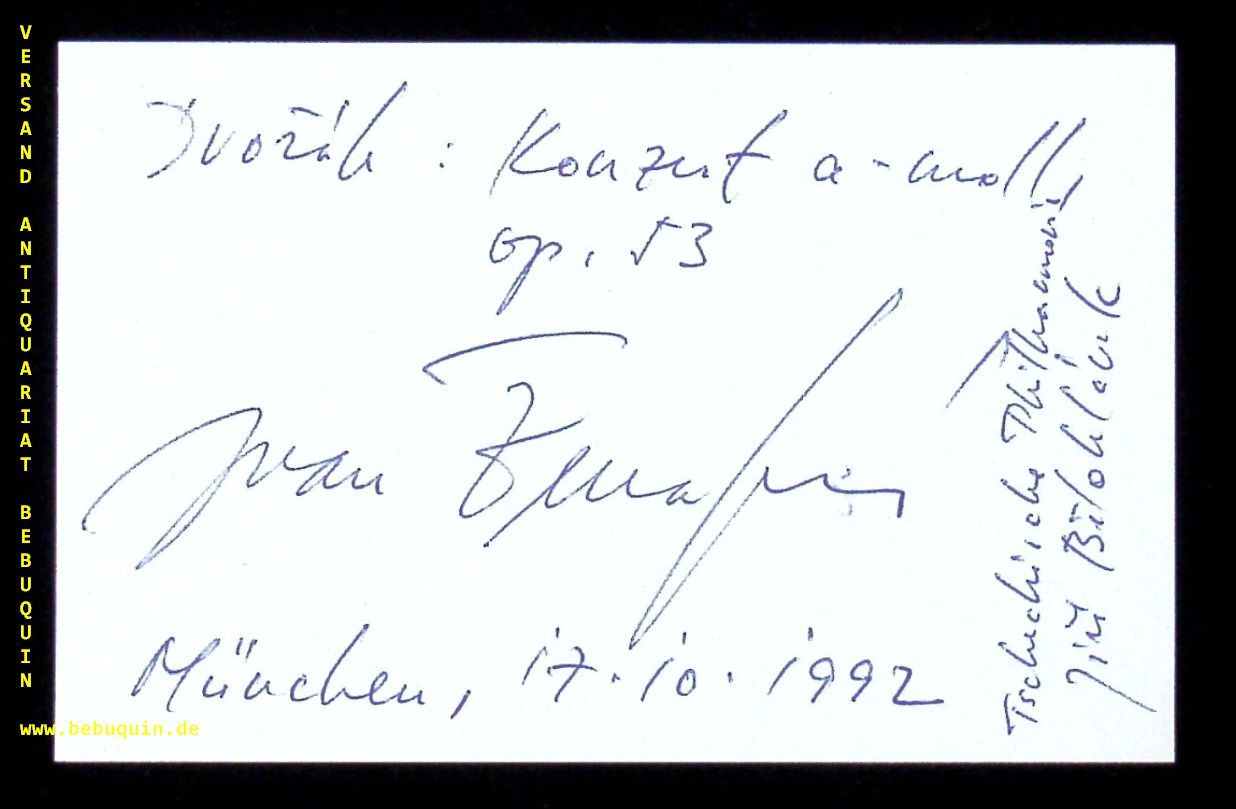 Dvořák : Konzert a-moll,
op. 53
Ivan
München, 17.10.1992
Tschechische Philharmonie
Jiří Bělohlávek
VERSAND ANTIQUARIAT BEBUQUIN
www.bebuquin.de